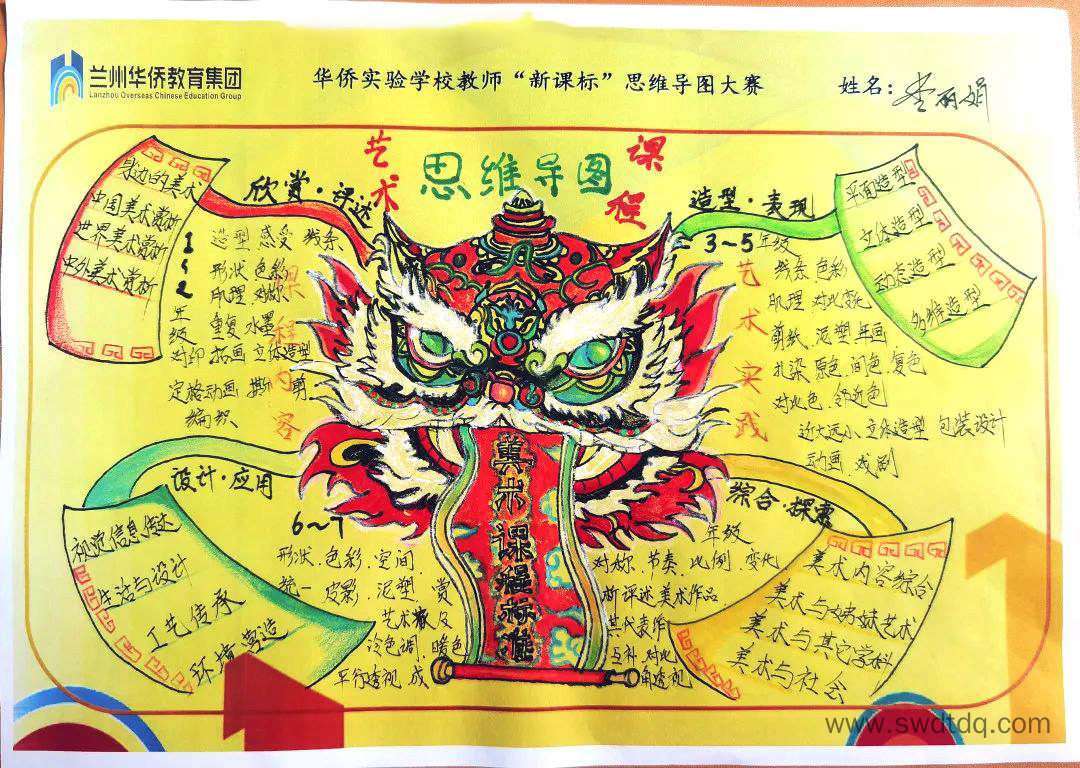 兰州华侨教育集团
Lanzhou Overseas Chinese Education Group
华侨实验学校教师“新课标”思维导图大赛
姓名：
丽娟
艺术
思维导图
课程
欣赏·评述
身边的美术
中国美术赏析
世界美术赏析
中外美术赏析
1~2年级
造型 感受 线条
形状 色彩
肌理 对比
重复 水墨
对印 拓画 立体造型
定格动画 撕 剪
编织
课程内容
造型·表现
平面造型
立体造型
动态造型
多维造型
3~5年级
线条 色彩
肌理 对比变化
剪纸、泥塑 年画
扎染 原色、间色、复色
对比色、邻近色
近大远小、立体造型 包装设计
动画、戏剧
艺术实践
设计·应用
视觉信息传达
生活与设计
工艺传承
环境营造
6~7
年级
形状、色彩、空间
统一 皮影、泥塑、赏
艺术家及
冷色调 暗色
平行透视 成
综合·探索
美术内容综合
美术与姊妹艺术
美术与其它学科
美术与社会
对称、节奏、比例、变化
析评述美术作品
其代表作
互补 对比
角透视
美术课程标准
www.swdtdq.com